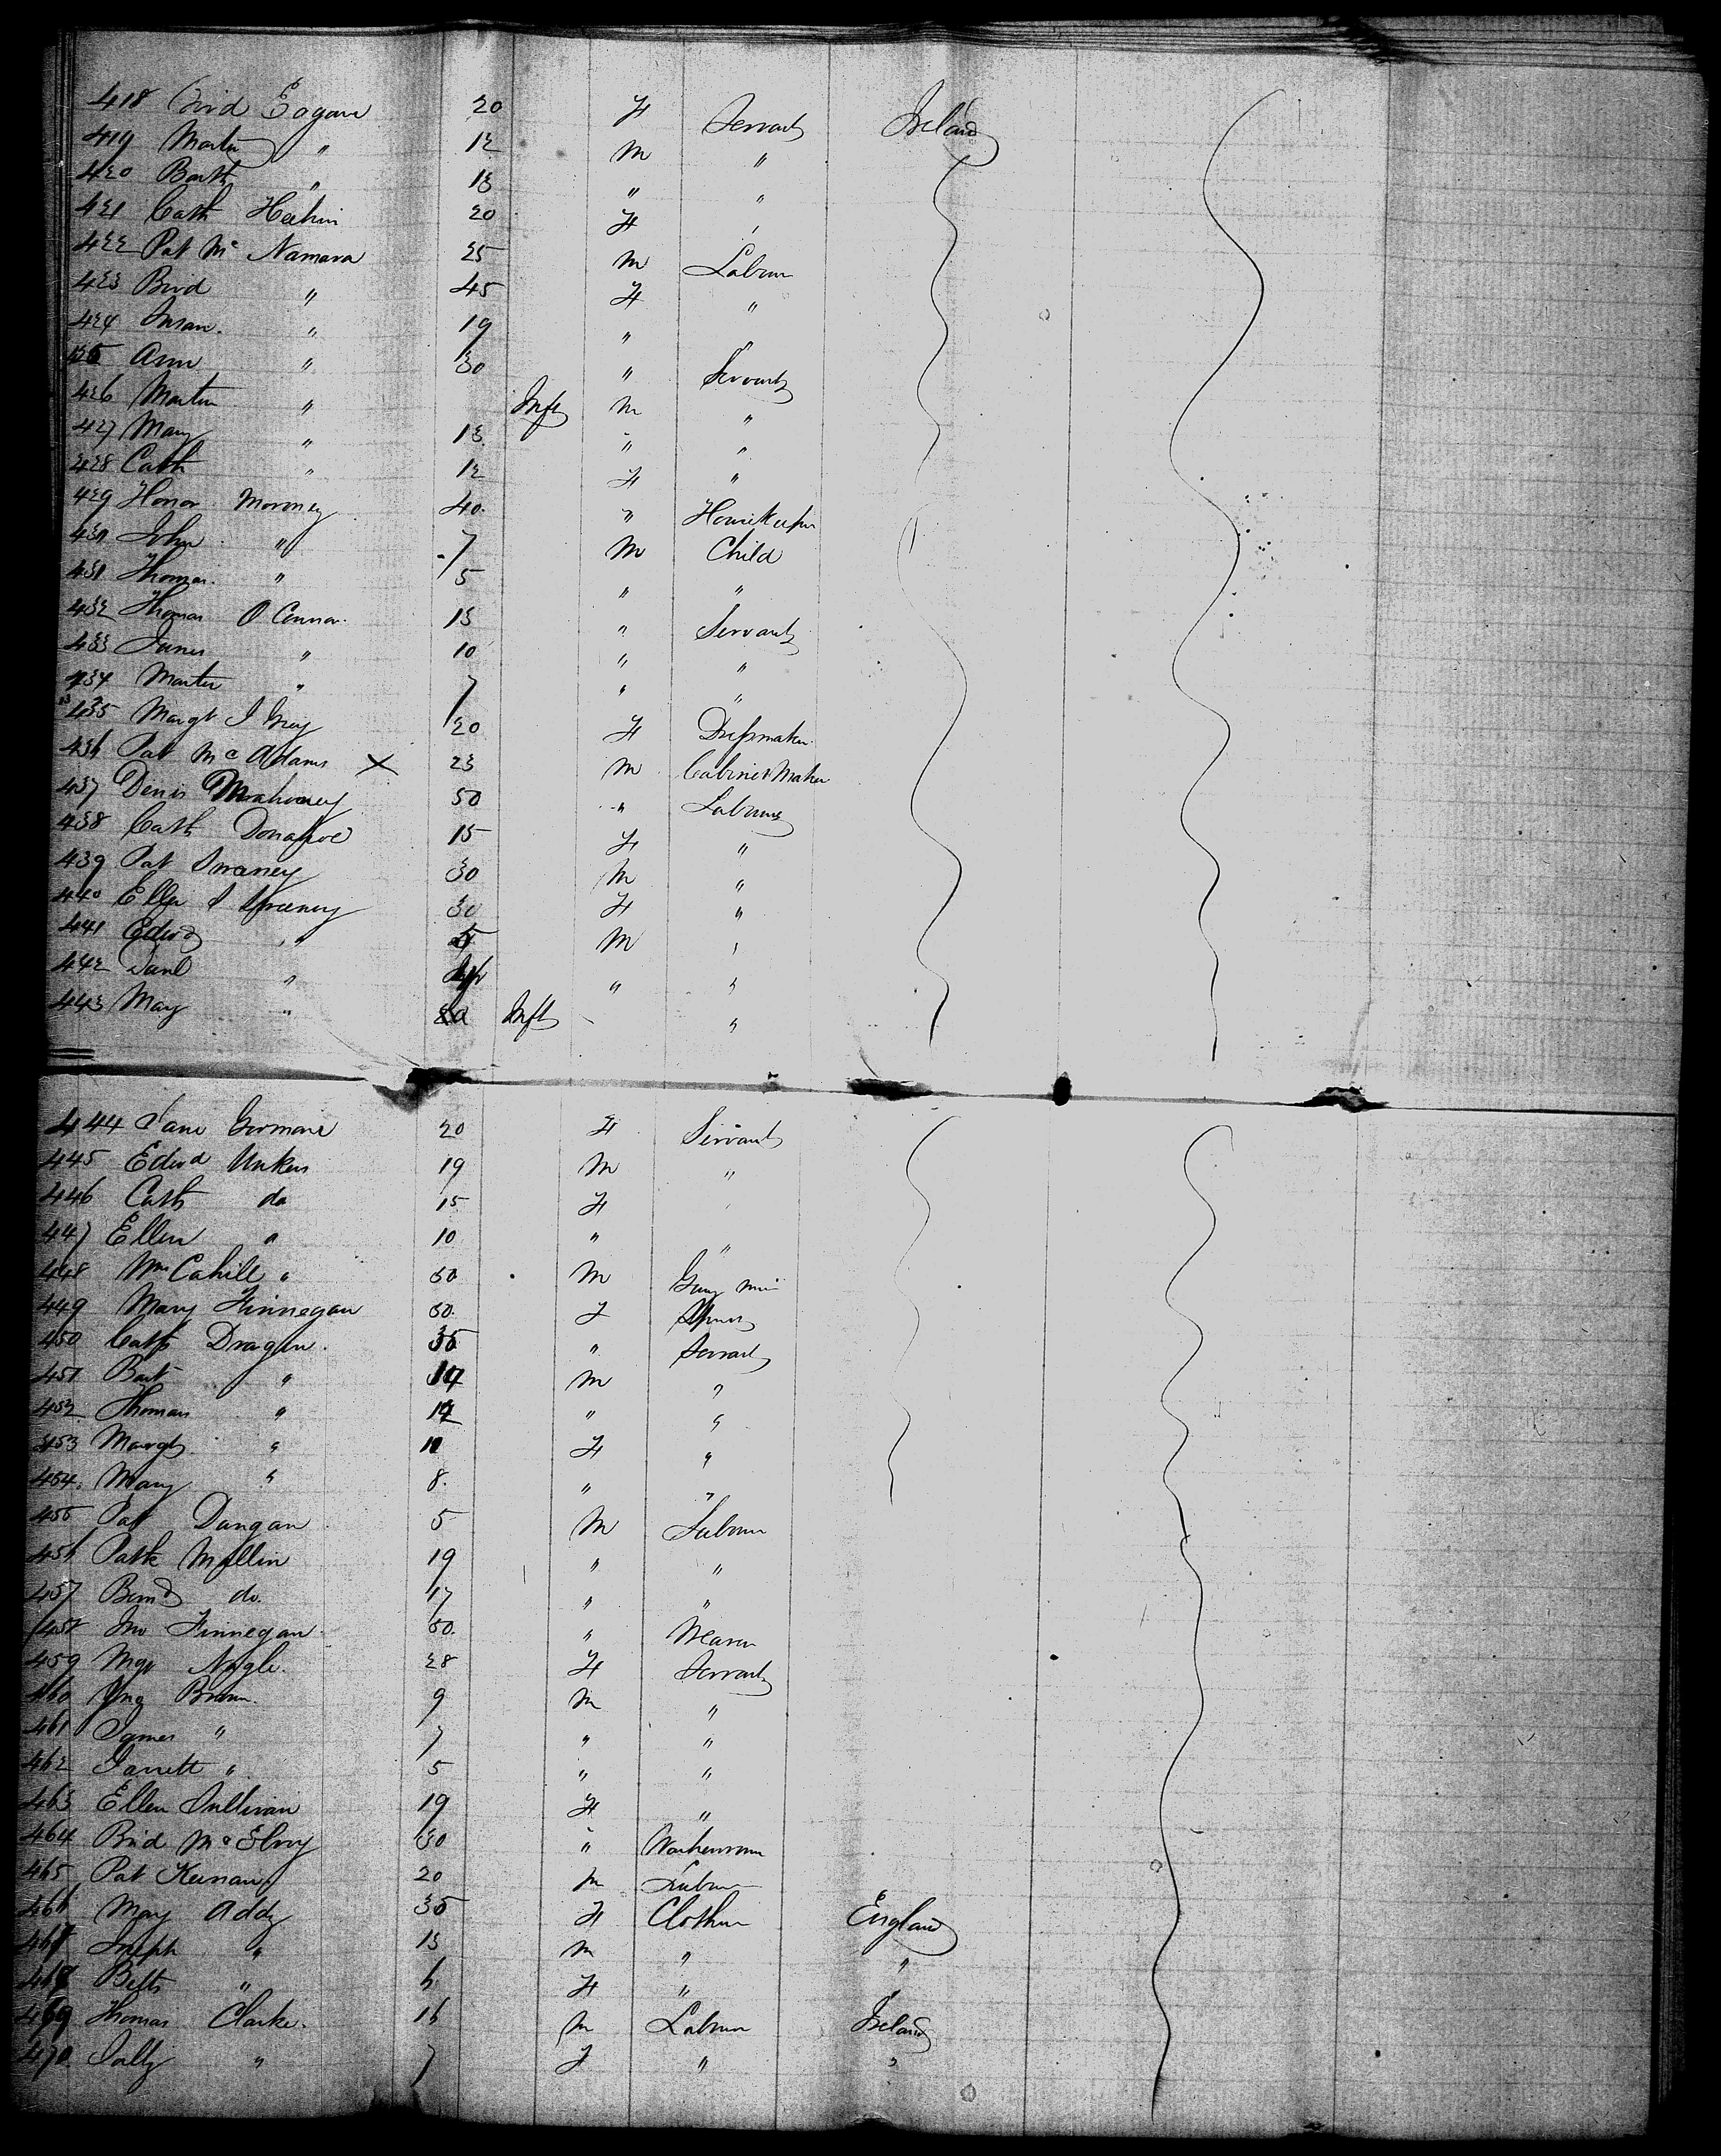 418 Brid Eagan 20 F Servant Ireland
419 Martin " 12 M "
420 Barth " 13 " "
421 Cath Heehin 20 F "
422 Pat Mc Namara 25 M Labour
423 Brid " 45 F "
424 Susan " 19 "
425 Ann " 30 " Servant
426 Martin " Inft M "
427 Mary " 13 " "
428 Cath " 12 F "
429 Honor Moroney 40 " Housekeeper
430 John " 7 M Child
431 Thomas " 5 " "
432 Thomas O Connor 13 " Servant
433 James " 10 " "
434 Martin " 7 " "
435 Margt 20 F Dressmaker
436 Pat Mc Adams X 23 M Cabinet Maker
437 Denis Mahoney 50 " Labourer
438 Cath Donahoe 15 F "
439 Pat Sweeney 30 M "
440 Ellen Sweeney 30 F "
441 Edwd " M "
442 Danl " " "
443 Mary " Inft "
444 Jane Gormani 20 F Servant
445 Edwd Unkers 19 M "
446 Cath do 15 F
447 Ellen " 10 " "
448 Wm Cahill " 30 M
449 Mary Finnegan 30 F
450 Cath Dragan 35 " Servant
451 Bart " 14 M "
452 Thomas " 12 " "
453 Margt " 11 F "
454 Mary " 8 " "
455 Pat Dangan 5 M Labour
456 Patk Mullin 19 " "
457 Bernd do. 17 " "
458 Jno Finnegan 50 " Weaver
459 Mgt Nagle 28 F Servant
460 Jno Brown 9 M "
461 James " 7 " "
462 Jarrett " 5 " "
463 Ellen Sullivan 19 F "
464 Brid Mc Elroy 30 " Washerwom
465 Pat Keenan 20 M Labour
466 Mary Addy 35 F Clothier England
467 Joseph " 13 M " "
468 Betts " 6 F "
469 Thomas Clarke 16 M Labour Ireland
470 Sally " 7 F " "